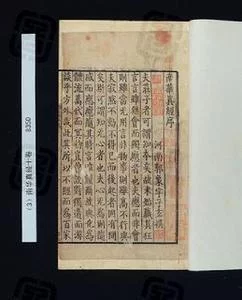 南華真經序
河南郭象子玄撰
夫莊子者可謂知本矣故未始藏其狂
言言雖無會而獨應者也夫應而非會
則雖當無用言非物事則雖高不行與
夫寂然不動不得已而後起者固有間
矣斯可謂知無心者也夫心無為則隨
感而應應隨其時言唯謹爾故與化為
體流萬代而冥物豈曾設對獨遘而游
談乎方外哉此其所以不經而為百家
(3) 南华真经十卷